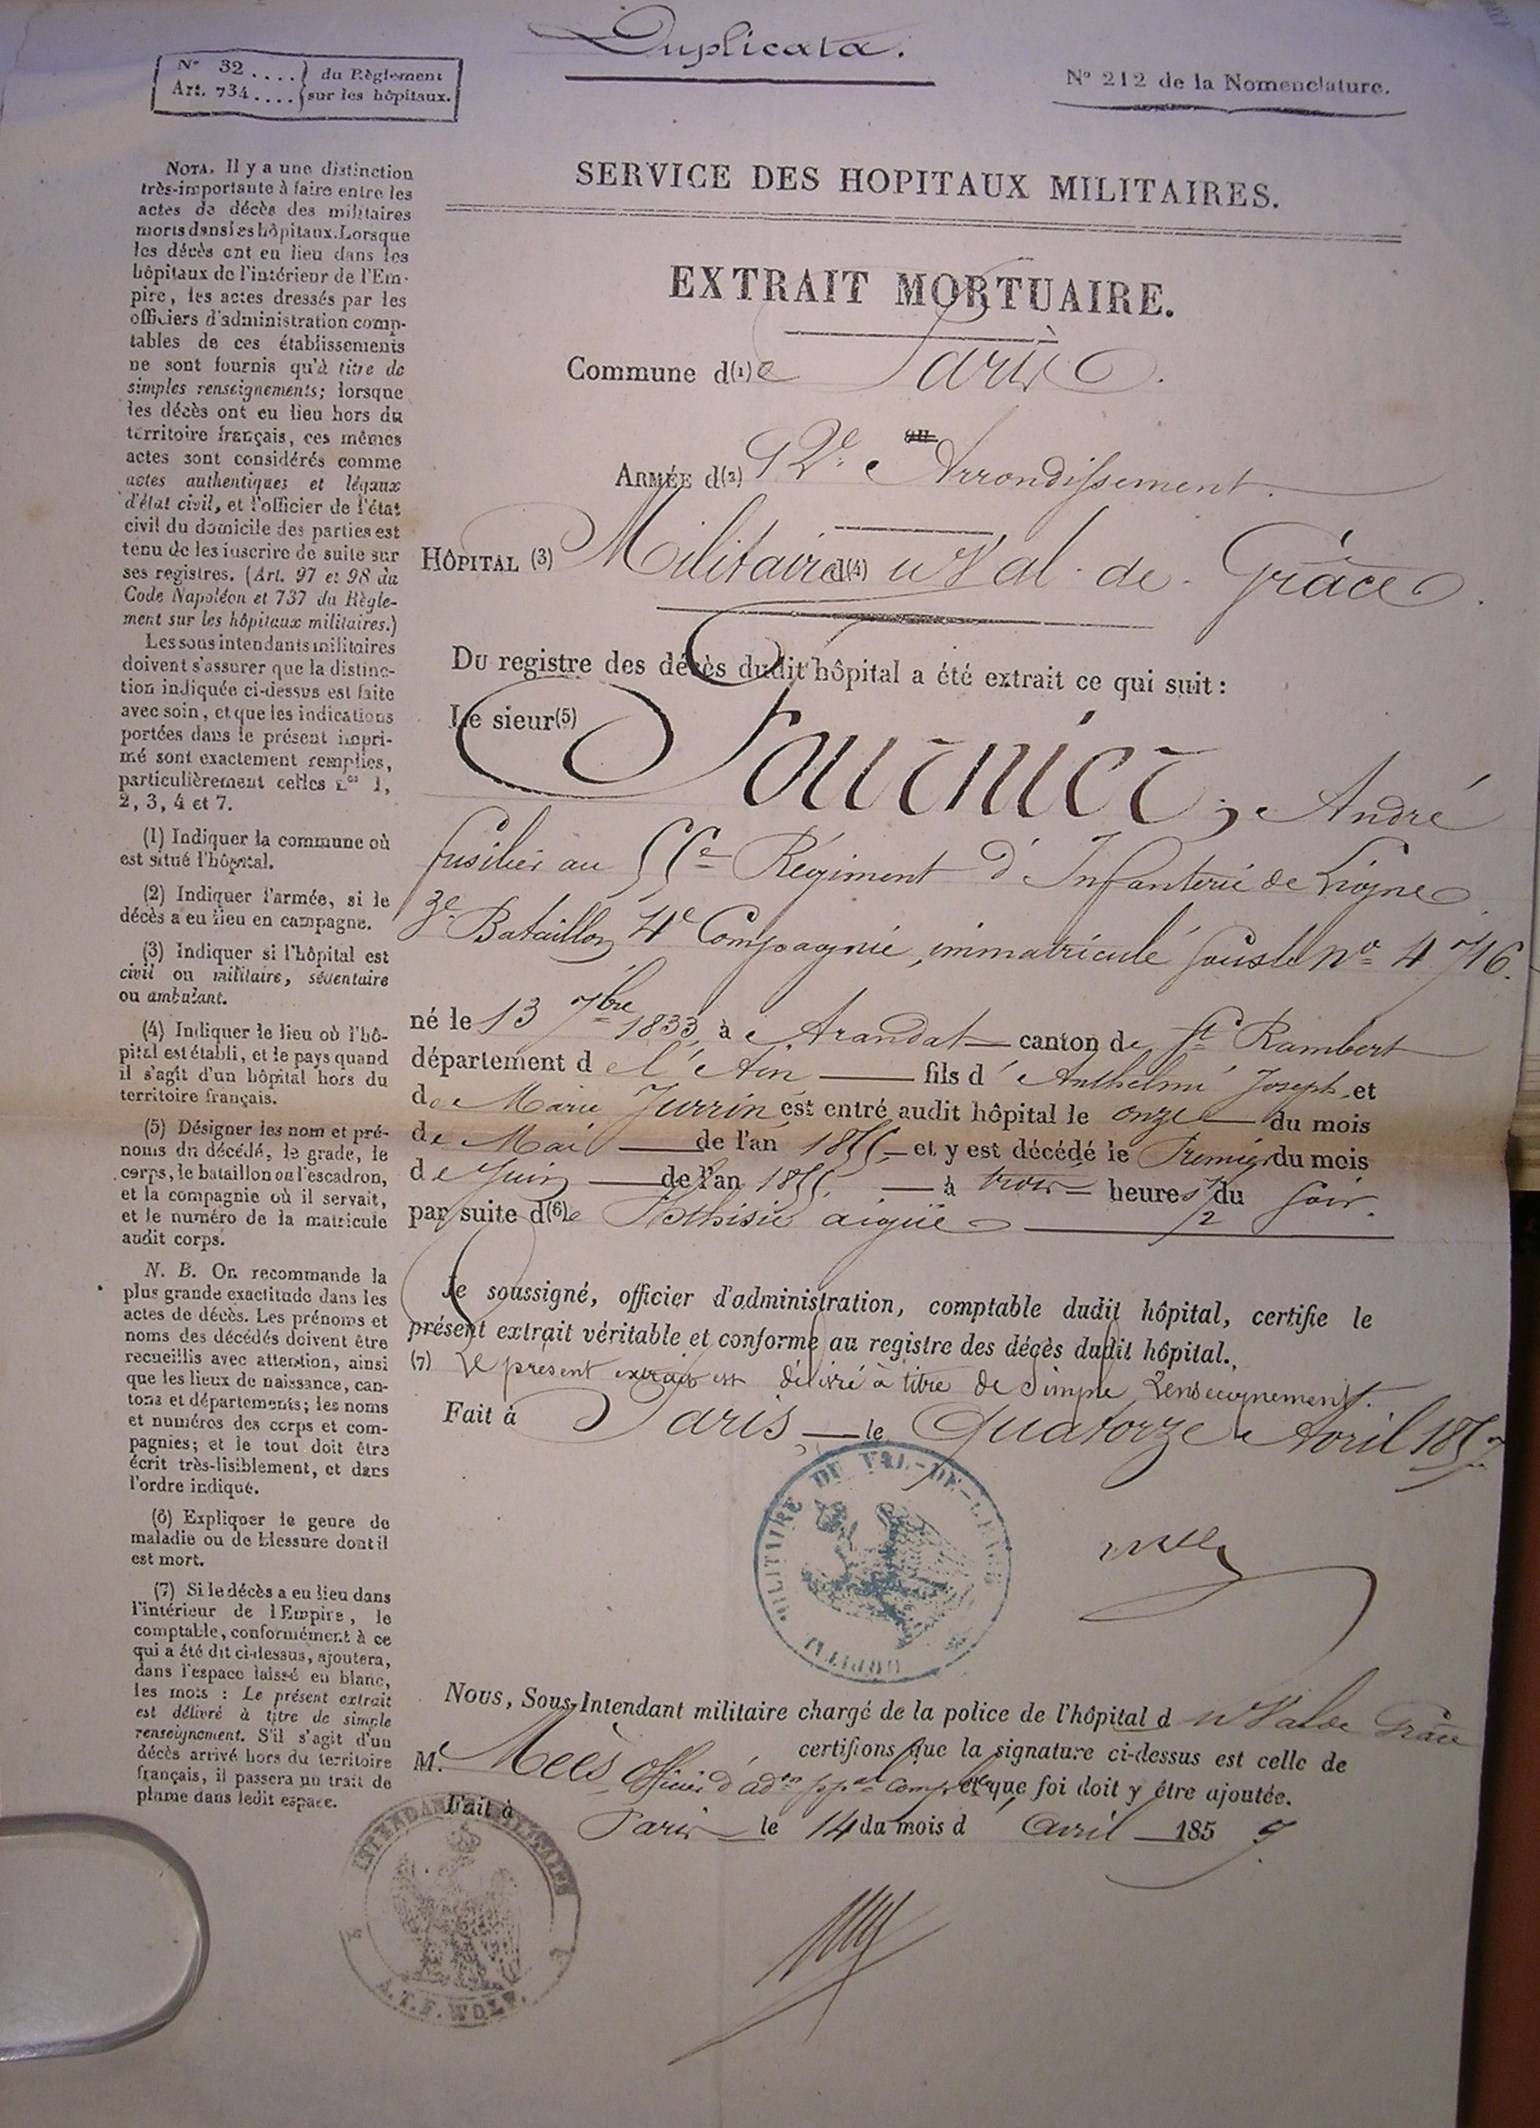 Duplicata.
N° 32 .... } du Règlement
Art. 734 .... } sur les hôpitaux.
N° 212 de la Nomenclature.
SERVICE DES HOPITAUX MILITAIRES.
EXTRAIT MORTUAIRE.
Commune d(1)e Paris.
ou
ARMÉE d(2) 12e Arrondissement.
HÔPITAL (3) Militaire d(4)u Val-de-Grâce.
Du registre des décès dudit hôpital a été extrait ce qui suit :
Le sieur(5) Fournier, André
fusilier au 55e Régiment d'Infanterie de Ligne
3e Bataillon 4e Compagnie, immatriculé sous le No 4716.
né le 13 7bre 1833 à Arandat canton de St Rambert
département de l'Ain fils d'Anthelme Joseph et
de Marie Jurrin, est entré audit hôpital le onze du mois
de Mai de l'an 1855 et y est décédé le Premier du mois
de Juin de l'an 1855 à trois heures 1/2 du soir.
par suite d(6)e Phthisie aigüe
Je soussigné, officier d'administration, comptable dudit hôpital, certifie le
présent extrait véritable et conforme au registre des décès dudit hôpital.
(7) Le présent extrait est délivré à titre de simple renseignement.
Fait à Paris le Quatorze Avril 1857
HÔPITAL MILITAIRE DU VAL-DE-GRACE
Nous, Sous-Intendant militaire chargé de la police de l'hôpital du Val de Grâce
certifions que la signature ci-dessus est celle de
M. Meès officier d'adon ppal Comple et que foi doit y être ajoutée.
Fait à Paris le 14 du mois d'Avril 1857.
INTENDANCE MILITAIRE
A.T.F. WOLF.
NOTA. Il y a une distinction
très-importante à faire entre les
actes de décès des militaires
morts dans les hôpitaux. Lorsque
les décès ont eu lieu dans les
hôpitaux de l'intérieur de l'Em-
pire, les actes dressés par les
officiers d'administration comp-
tables de ces établissements
ne sont fournis qu'à titre de
simples renseignements; lorsque
les décès ont eu lieu hors du
territoire français, ces mêmes
actes sont considérés comme
actes authentiques et légaux
d'état civil, et l'officier de l'état
civil du domicile des parties est
tenu de les inscrire de suite sur
ses registres. (Art. 97 et 98 du
Code Napoléon et 737 du Règle-
ment sur les hôpitaux militaires.)
Les sous intendants militaires
doivent s'assurer que la distinc-
tion indiquée ci-dessus est faite
avec soin, et que les indications
portées dans le présent impri-
mé sont exactement remplies,
particulièrement celles nos 1,
2, 3, 4 et 7.
(1) Indiquer la commune où
est situé l'hôpital.
(2) Indiquer l'armée, si le
décès a eu lieu en campagne.
(3) Indiquer si l'hôpital est
civil ou militaire, sédentaire
ou ambulant.
(4) Indiquer le lieu où l'hô-
pital est établi, et le pays quand
il s'agit d'un hôpital hors du
territoire français.
(5) Désigner les nom et pré-
noms du décédé, le grade, le
corps, le bataillon ou l'escadron,
et la compagnie où il servait,
et le numéro de la matricule
audit corps.
N. B. On recommande la
plus grande exactitude dans les
actes de décès. Les prénoms et
noms des décédés doivent être
recueillis avec attention, ainsi
que les lieux de naissance, can-
tons et départements; les noms
et numéros des corps et com-
pagnies; et le tout doit être
écrit très-lisiblement, et dans
l'ordre indiqué.
(6) Expliquer le genre de
maladie ou de blessure dont il
est mort.
(7) Si le décès a eu lieu dans
l'intérieur de l'Empire, le
comptable, conformément à ce
qui a été dit ci-dessus, ajoutera,
dans l'espace laissé en blanc,
les mots : Le présent extrait
est délivré à titre de simple
renseignement. S'il s'agit d'un
décès arrivé hors du territoire
français, il passera un trait de
plume dans ledit espace.